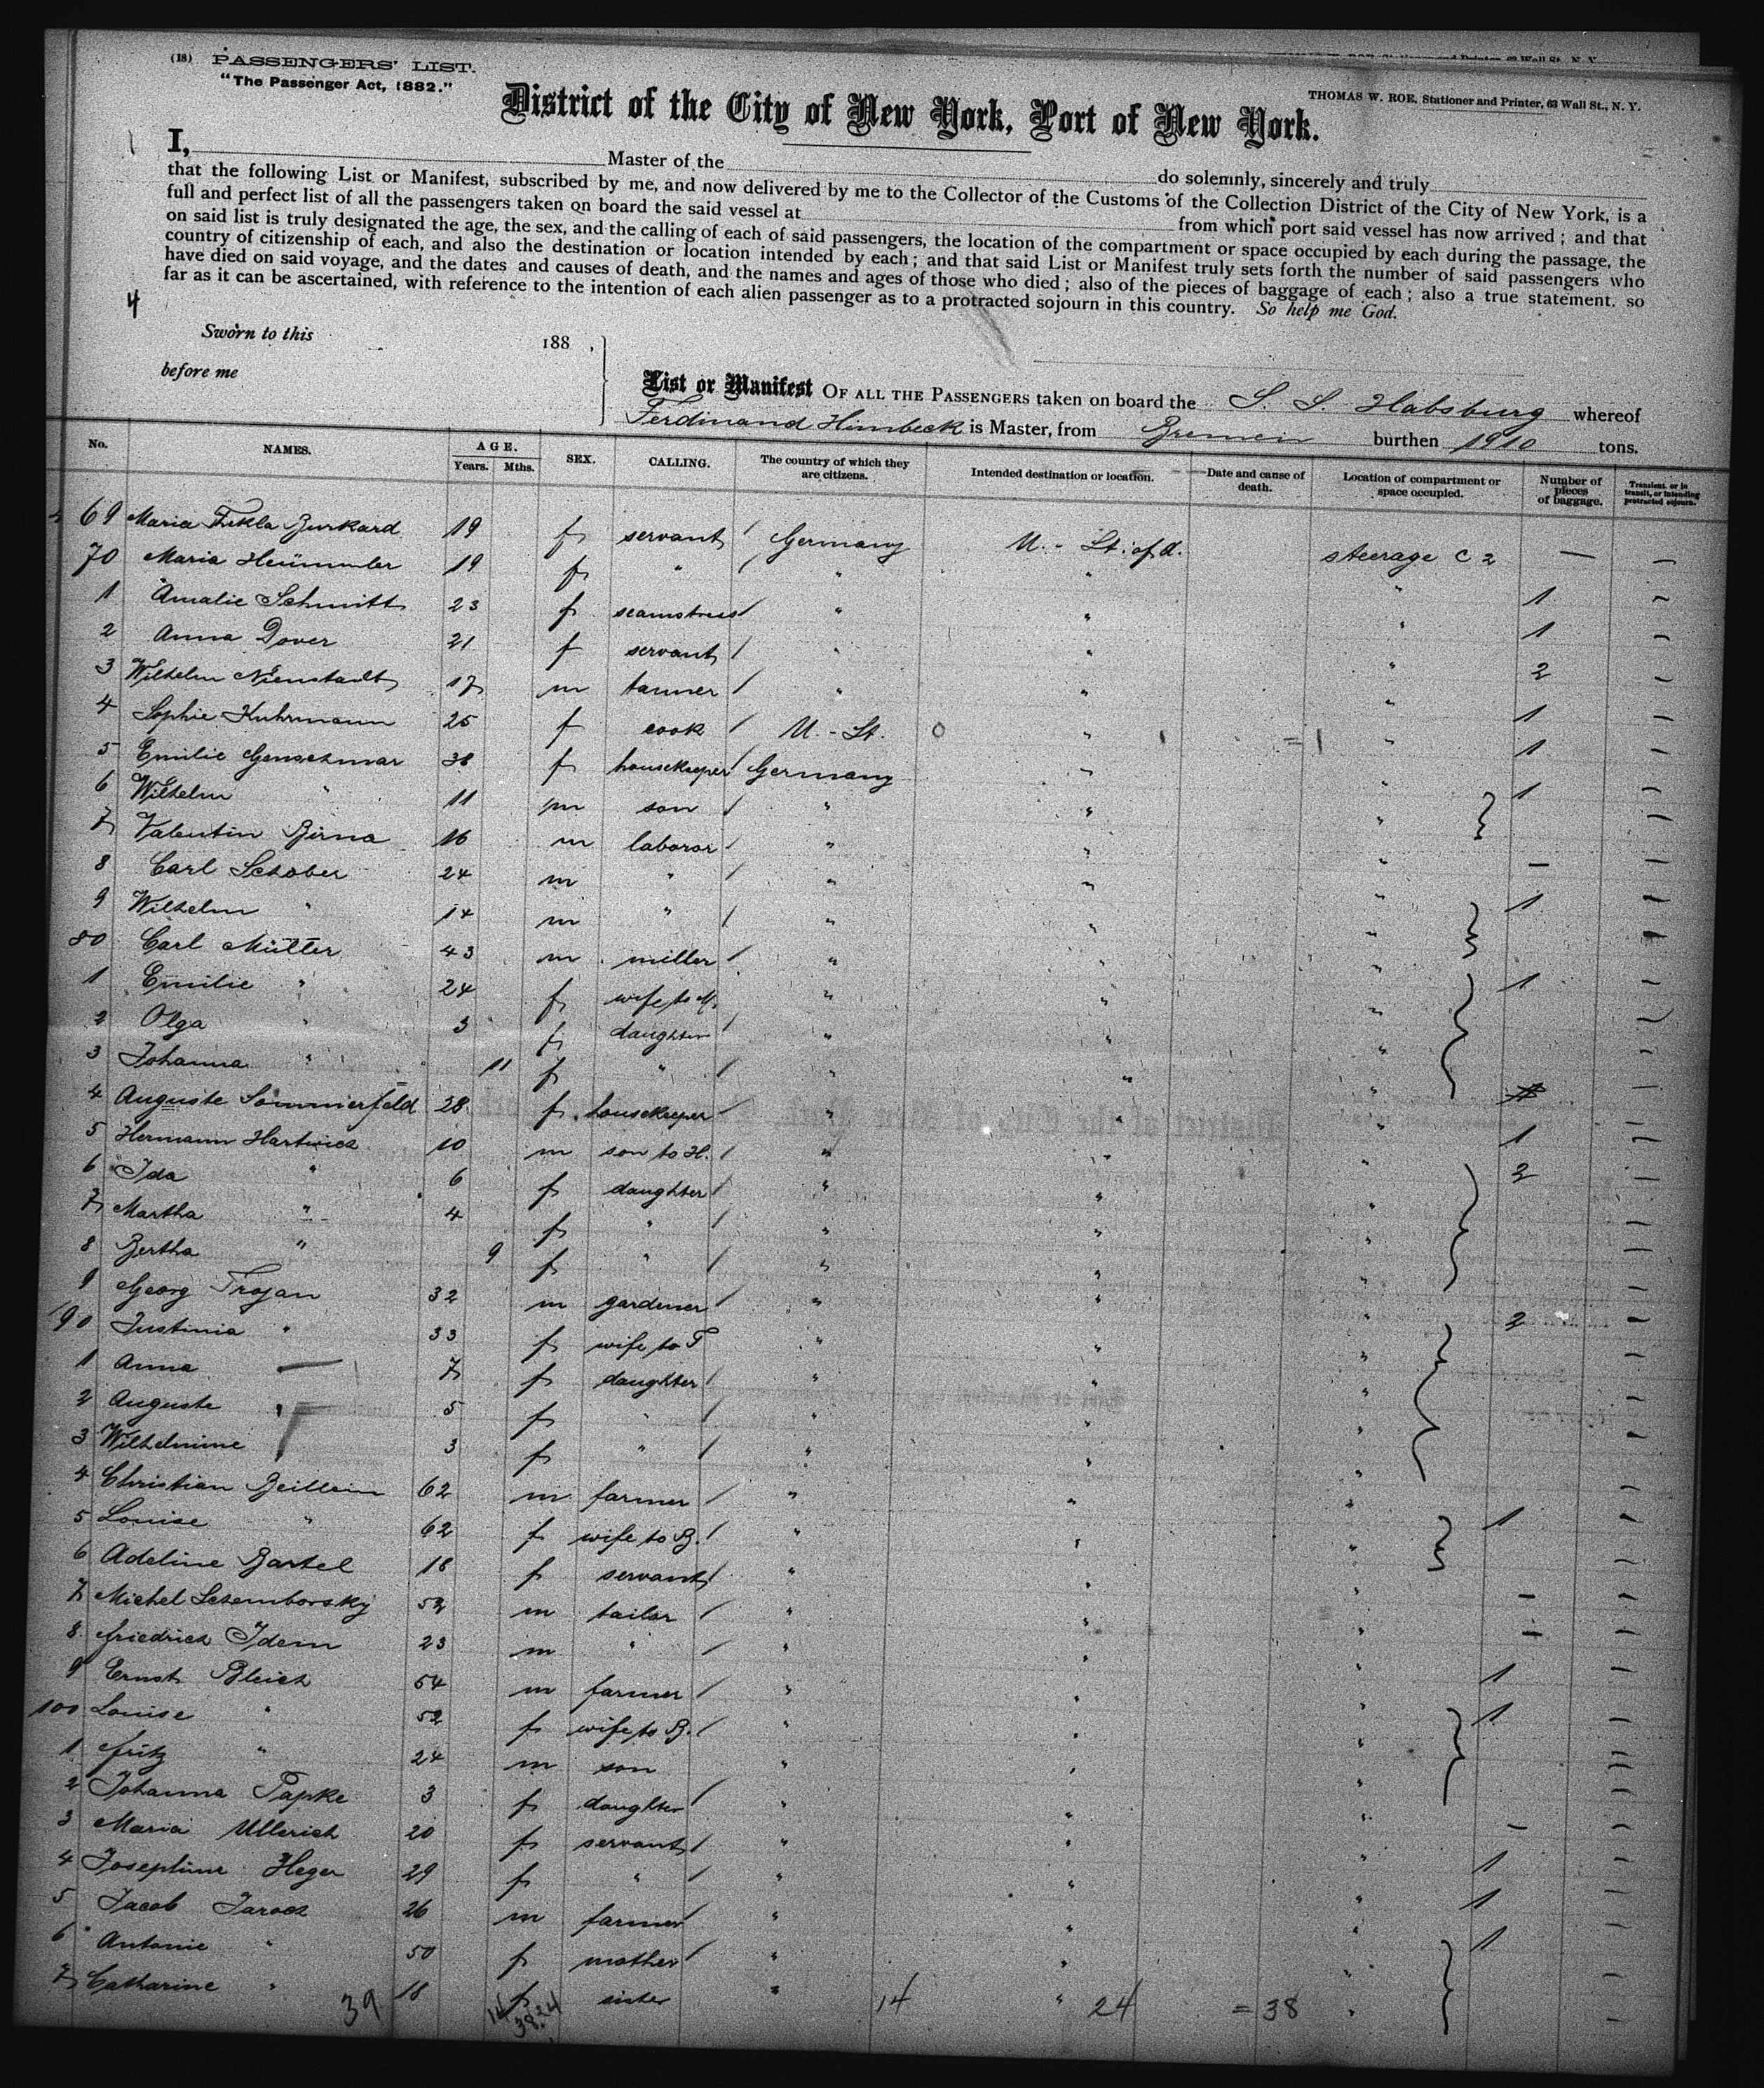 (18) PASSENGERS' LIST.
"The Passenger Act, 1882."
THOMAS W. ROE, Stationer and Printer, 63 Wall St., N. Y.
District of the City of New York, Port of New York.
I, Master of the do solemnly, sincerely and truly
that the following List or Manifest, subscribed by me, and now delivered by me to the Collector of the Customs of the Collection District of the City of New York, is a
full and perfect list of all the passengers taken on board the said vessel at from which port said vessel has now arrived ; and that
on said list is truly designated the age, the sex, and the calling of each of said passengers, the location of the compartment or space occupied by each during the passage, the
country of citizenship of each, and also the destination or location intended by each ; and that said List or Manifest truly sets forth the number of said passengers who
have died on said voyage, and the dates and causes of death, and the names and ages of those who died ; also of the pieces of baggage of each ; also a true statement, so
far as it can be ascertained, with reference to the intention of each alien passenger as to a protracted sojourn in this country. So help me God.
4
Sworn to this 188 ,
before me
List or Manifest OF ALL THE PASSENGERS taken on board the S. S. Habsburg whereof
Ferdinand Himbeck is Master, from Bremen burthen 1910 tons.
No. NAMES. AGE. Years. Mths. SEX. CALLING. The country of which they are citizens. Intended destination or location. Date and cause of death. Location of compartment or space occupied. Number of pieces of baggage. Transient or in transit, or intending protracted sojourn.
69 Maria Tekla Burkard 19 f servant / Germany U. - St. of A. steerage C 2 — —
70 Maria Heümmler 19 f " / " " " 1 —
1 Amalie Schmitt 23 f seamstress / " " " 1 —
2 Anna Dover 21 f servant / " " " 2 —
3 Wilhelm Nienstadt 17 m tanner / " " " 1 —
4 Sophie Kuhrmann 25 f cook / U. - St. 0 " 1 = 1 " 1 —
5 Emilie Genschmar 38 f housekeeper / Germany " " 1 —
6 Wilhelm " 11 m son / " " " —
7 Valentin Birna 16 m laboror / " " " — —
8 Carl Schober 24 m " / " " " 1 —
9 Wilhelm " 14 m " / " " " —
80 Carl Müller 43 m miller / " " " 1 —
1 Emilie " 24 f wife to M. " " " —
2 Olga " 3 f daughter / " " " —
3 Johanna " 11 f " / " " " —
4 Auguste Sommerfeld 28 f housekeeper / " " " 1 —
5 Hermann Hartwich 10 m son to H. / " " " 2 —
6 Ida " 6 f daughter / " " " —
7 Martha " 4 f " / " " " —
8 Bertha " 9 f " / " " " —
9 Georg Trojan 32 m gardener / " " " 2 —
90 Justinia " 33 f wife to T " " " —
1 Anna 7 f daughter / " " " —
2 Auguste " 5 f " / " " " —
3 Wilhelmine 3 f " / " " " —
4 Christian Beillein 62 m farmer / " " " 1 —
5 Louise " 62 f wife to B. / " " " —
6 Adeline Bartel 18 f servant / " " " — —
7 Michel Schemborsky 52 m tailor / " " " — —
8 Friedrich Idem 23 m " / " " " 1 —
9 Ernst Bleich 54 m farmer / " " " 1 —
100 Louise " 52 f wife to B. / " " " —
1 Fritz " 24 m son " " " —
2 Johanna Papke 3 f daughter " " " — —
3 Maria Ullerich 20 f servant / " " " 1 —
4 Josephine Heger 29 f " / " " " 1 —
5 Jacob Jaroch 26 m farmer " " " 1 —
6 Antonie " 50 f mother / " " " —
7 Catharine " 18 f sister " " " —
39 14 38.24 14 24 = 38